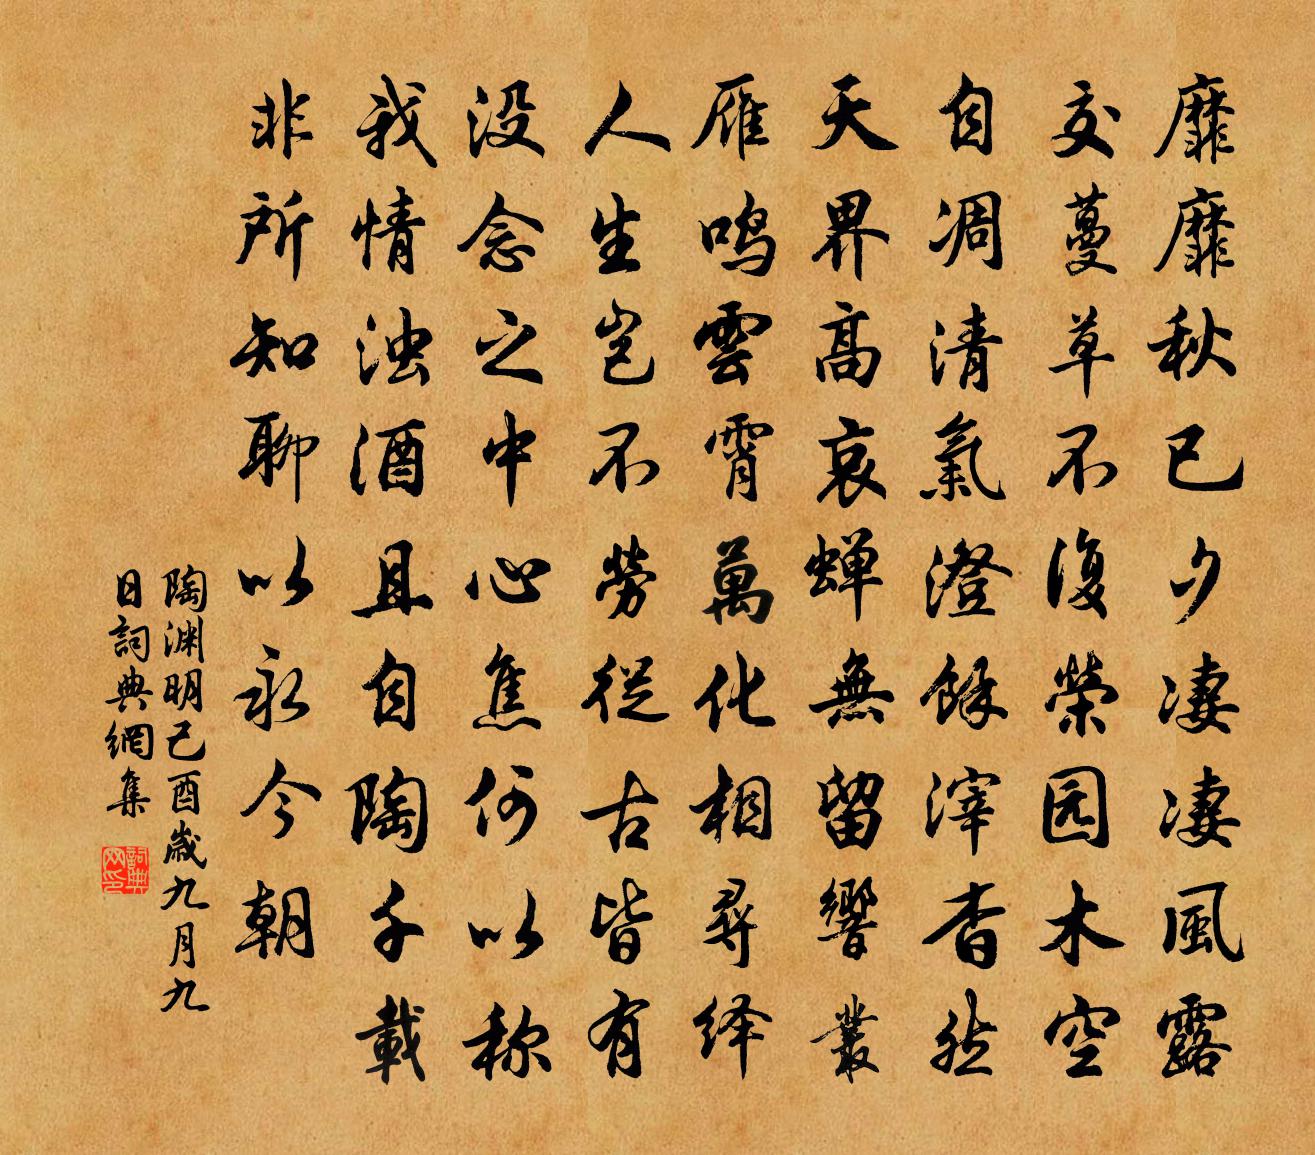 靡靡秋已夕凄凄風露
交蔓草不復榮园木空
自凋清氣澄餘滓杳然
天界高哀蝉無留響叢
雁鸣雲霄萬化相尋绎
人生岂不勞從古皆有
没念之中心焦何以称
我情浊酒且自陶千載
非所知聊以永今朝
陶渊明己酉歲九月九
日詞典網集
詞典网印